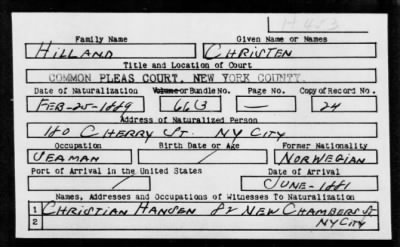 H 453
Family Name Given Name or Names
HILLAND CHRISTEN
Title and Location of Court
COMMON PLEAS COURT, NEW YORK COUNTY.
Date of Naturalization Volume or Bundle No. Page No. Copy of Record No.
FEB-25-1889 663 — 24
Address of Naturalized Person
180 CHERRY ST. NY CITY
Occupation Birth Date or Age Former Nationality
SEAMAN / NORWEGIAN
Port of Arrival in the United States Date of Arrival
/ JUNE-1881
Names, Addresses and Occupations of Witnesses To Naturalization
1 CHRISTIAN HANSEN 82 NEW CHAMBERS ST
2 NY CITY